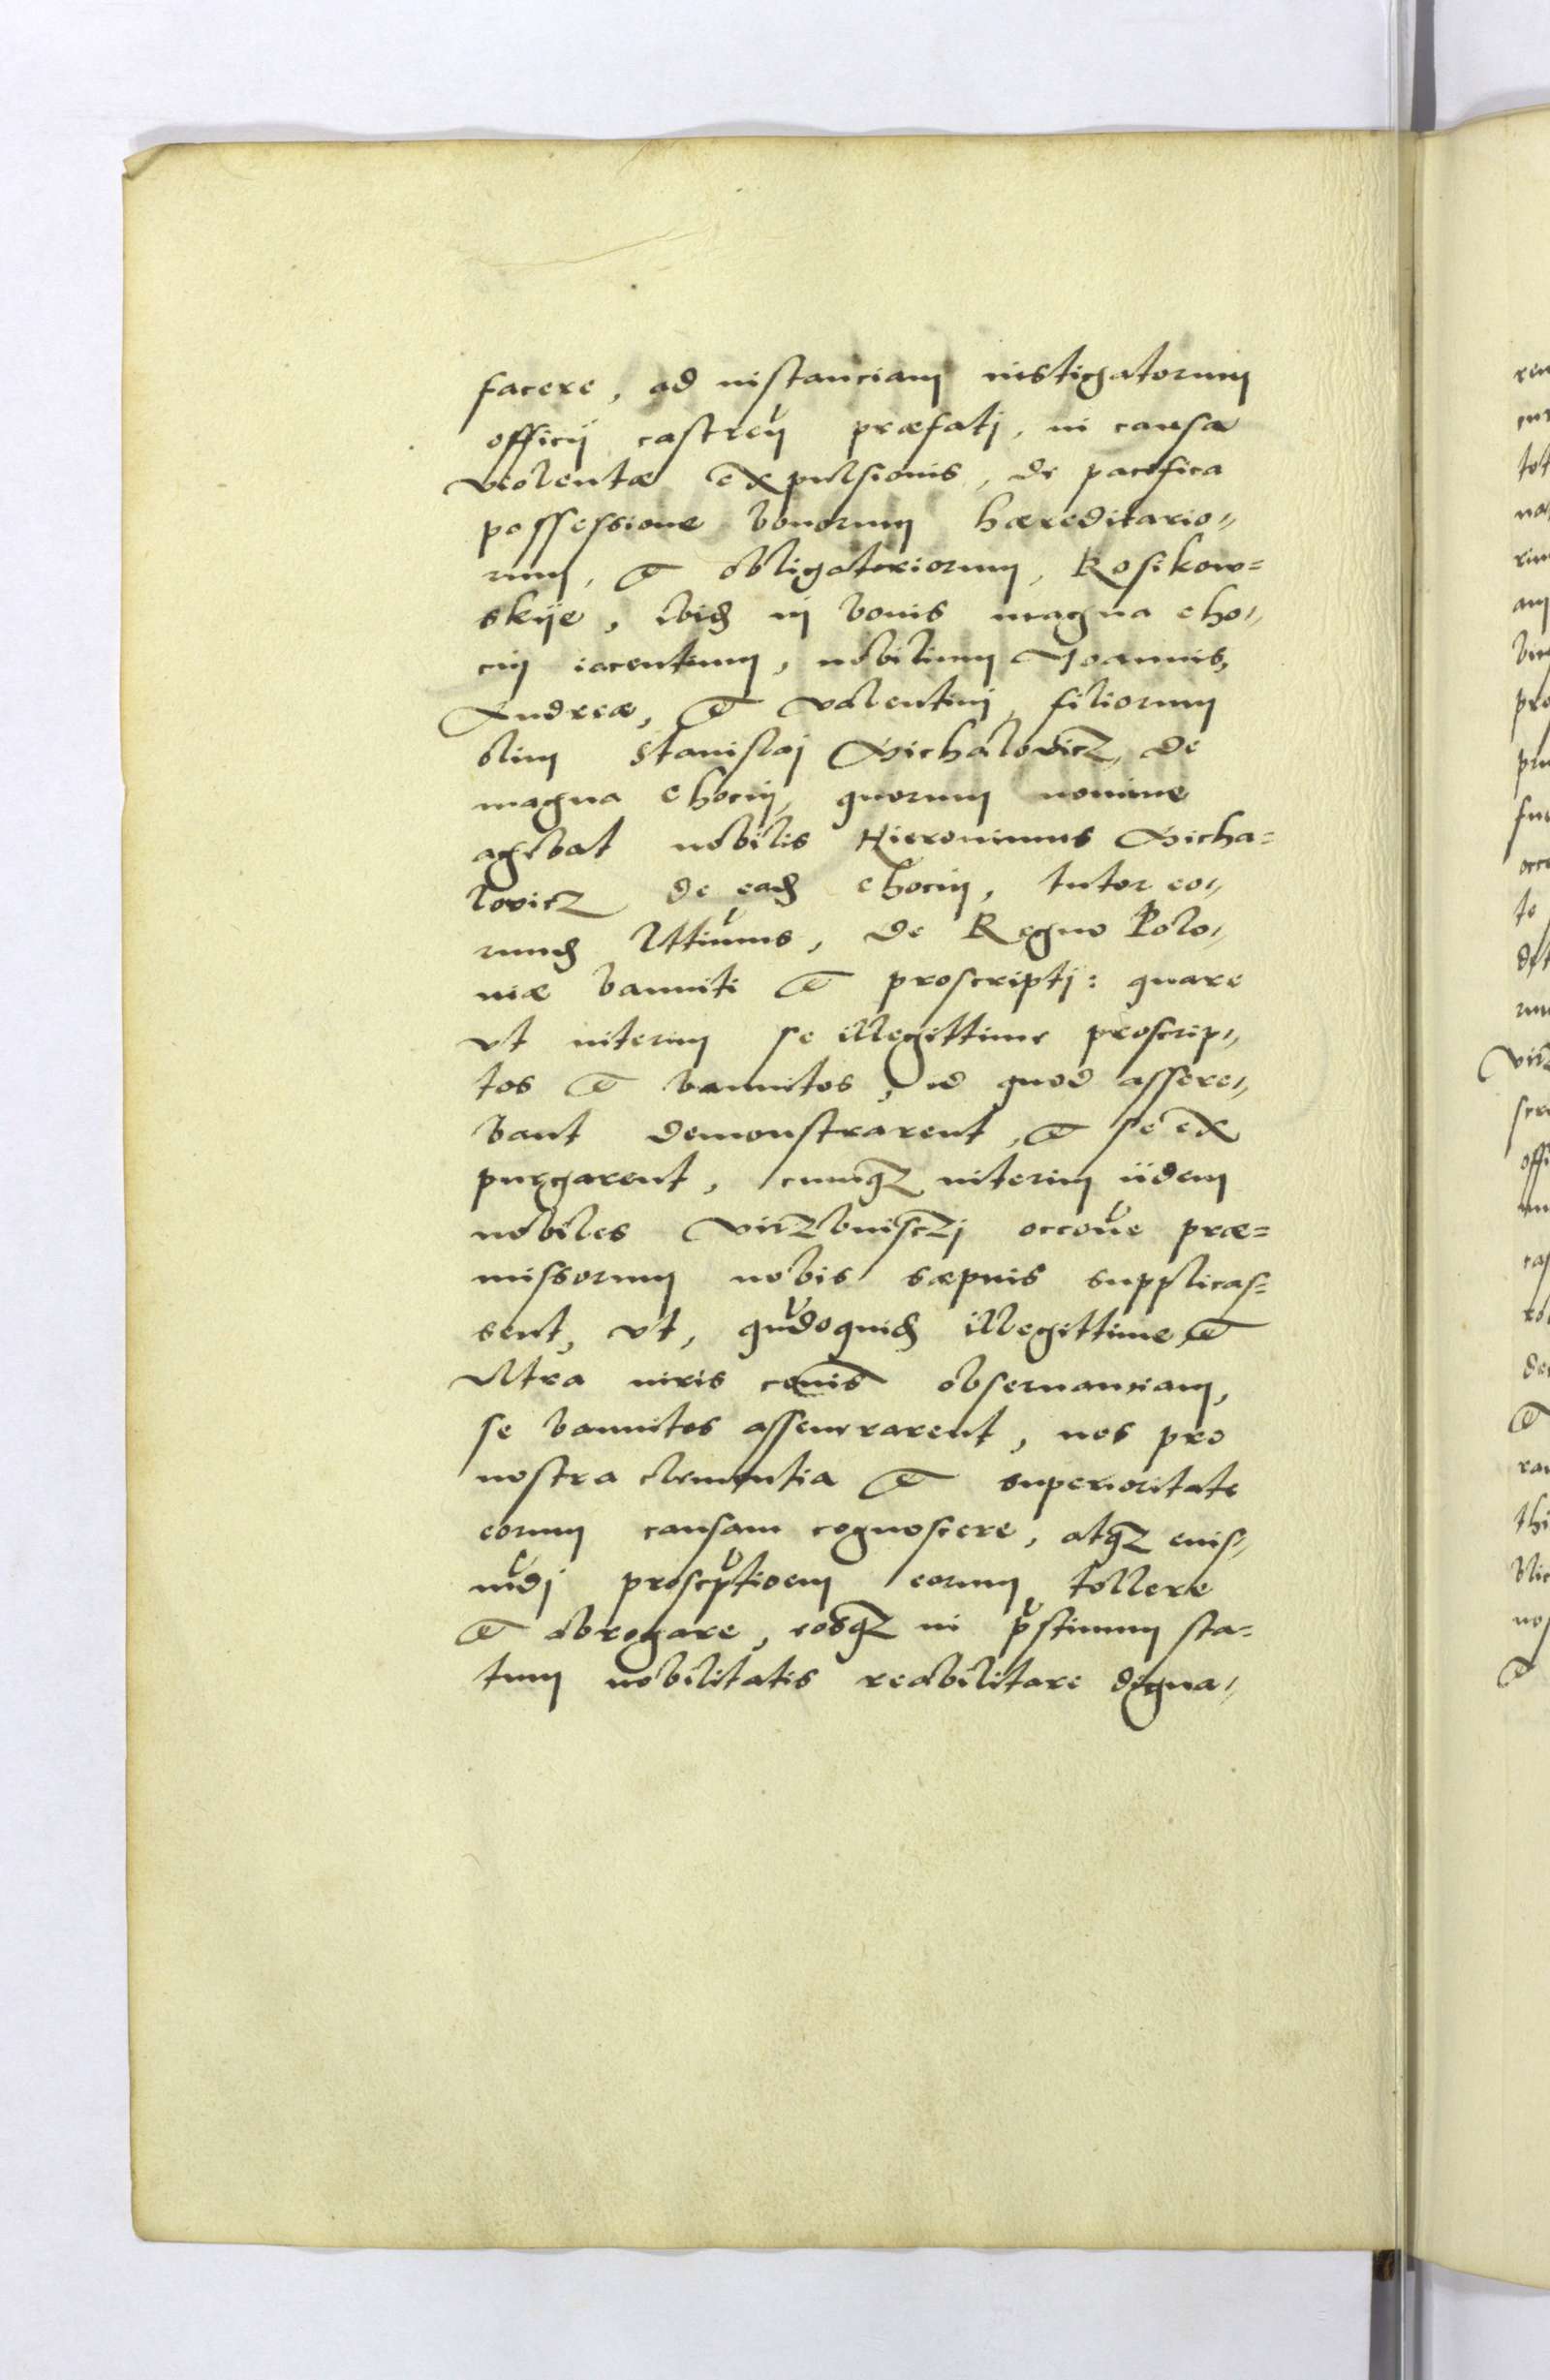 facere, ad instanciam instigatorum
officij castreñ præfatj, in causa
violentæ expulsionis, de pacifica
possessione bonorum hæreditario„
rum, & obligatoriorum, Rosikow=
skije, ibid in bonis magna Cho„
cin iacentium, nobilium Joannis,
Andreæ, & Valentini, filiorum
olim Stanislaj Michalovicz, de
magna Chocin, quorum nomine
agebat nobilis Hieronimus Micha=
lovicz de ead Chocin, tutor eo„
rund lttimus, de Regno Polo„
niæ banniti & proscriptj: quare
vt interim se illegittime proscrip„
tos & bannitos, id quod assere„
bant demonstrarent, & se ex
purgarent, cumqz interim iidem
nobiles Virzbnisczj occoe præ=
missorum nobis sæpius supplicas=
sent, vt, qudoquid illegittime &
vltra iuris cois obseruanciam,
se bannitos asseuerarent, nos pro
nostra clementia & superioritate
eorum causam cognoscere, atqz euis„
modj proscptioem eorum tollere
& abrogare, eosqz in pstinum sta=
tum nobilitatis reabilitare digna„